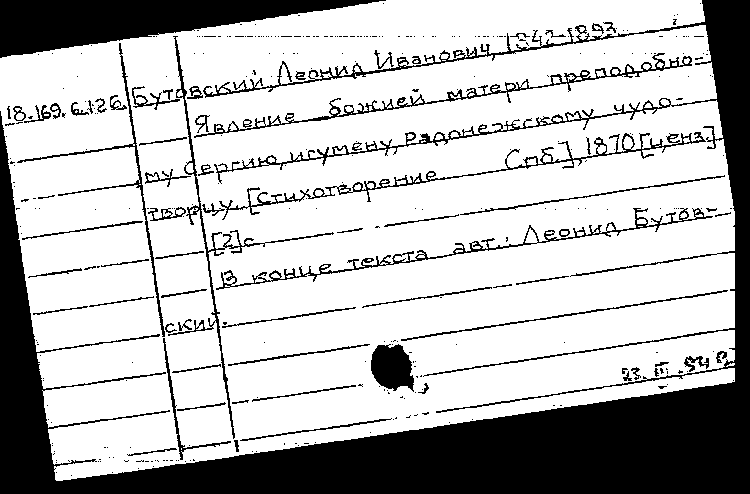 18.169.6.126. Бутовский, Леонид Иванович, 1842-1893
Явление божией матери преподобно-
му Сергию, игумену, Радонежскому чудо-
творцу. [Стихотворение Спб.], 1870 [ценз.]
[2] с.
В конце текста авт.: Леонид Бутов-
ский.
23. III. 94